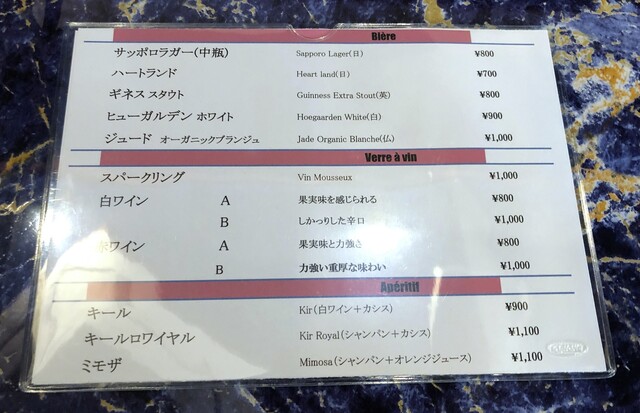 Bière
サッポロラガー(中瓶) Sapporo Lager(日) ¥800
ハートランド Heart land(日) ¥700
ギネス スタウト Guinness Extra Stout(英) ¥800
ヒューガルデン ホワイト Hoegaarden White(白) ¥900
ジュード オーガニックブランジュ Jade Organic Blanche(仏) ¥1,000
Verre à vin
スパークリング Vin Mousseux ¥1,000
白ワイン A 果実味を感じられる ¥800
B しかっりした辛口 ¥1,000
赤ワイン A 果実味と力強さ ¥800
B 力強い重厚な味わい ¥1,000
Apéritif
キール Kir(白ワイン+カシス) ¥900
キールロワイヤル Kir Royal(シャンパン+カシス) ¥1,100
ミモザ Mimosa(シャンパン+オレンジジュース) ¥1,100